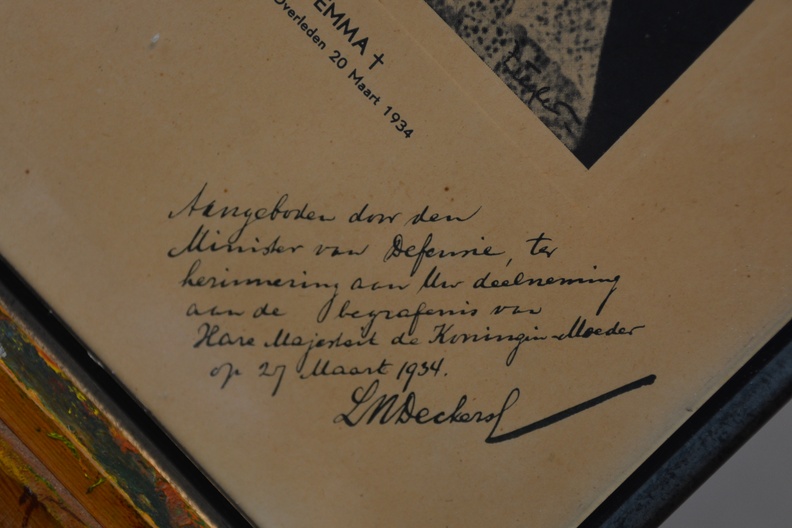 EMMA †
Overleden 20 Maart 1934
Aangeboden door den
Minister van Defensie, ter
herinnering aan Uw deelneming
aan de begrafenis van
Hare Majesteit de Koningin-Moeder
op 27 Maart 1934.
LNDeckers